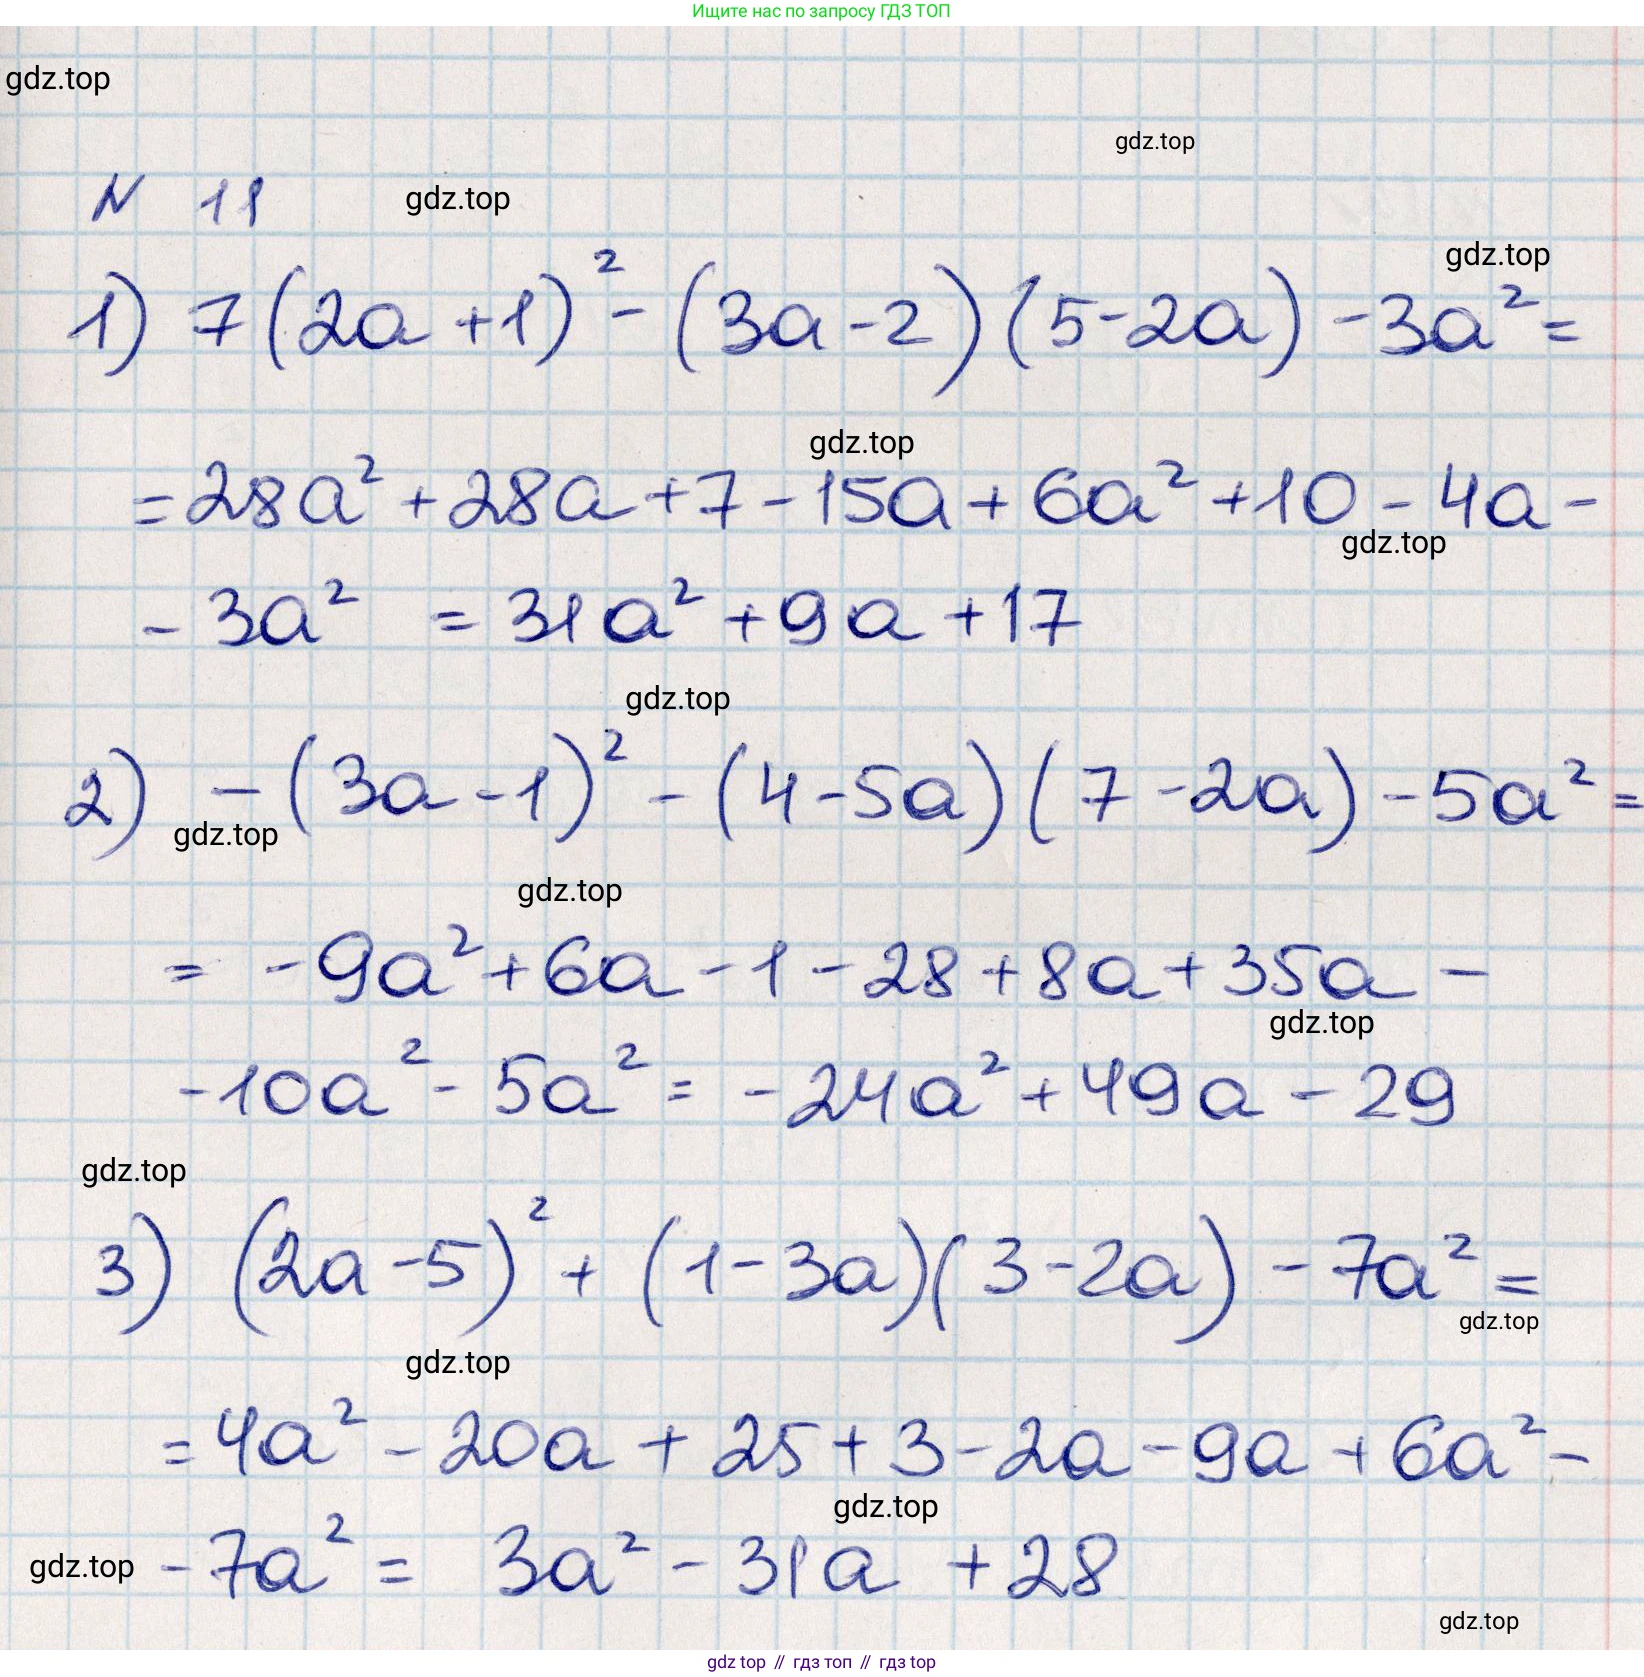 Ищите нас по запросу ГДЗ ТОП
gdz.top
gdz.top
N 11
gdz.top
gdz.top
1) 7(2a+1)² - (3a-2)(5-2a) - 3a² =
gdz.top
= 28a² + 28a + 7 - 15a + 6a² + 10 - 4a -
gdz.top
- 3a² = 31a² + 9a + 17
gdz.top
2) - (3a-1)² - (4-5a)(7-2a) - 5a² =
gdz.top
gdz.top
= - 9a² + 6a - 1 - 28 + 8a + 35a -
gdz.top
- 10a² - 5a² = - 24a² + 49a - 29
gdz.top
3) (2a-5)² + (1-3a)(3-2a) - 7a² =
gdz.top
gdz.top
= 4a² - 20a + 25 + 3 - 2a - 9a + 6a² -
gdz.top
gdz.top - 7a² = 3a² - 31a + 28
gdz.top
gdz top // гдз топ // гдз top